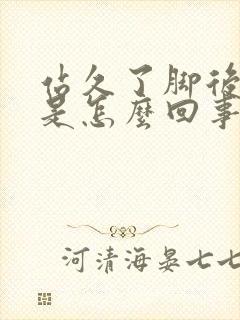 站久了脚後
是怎麼回事
河清海晏七七